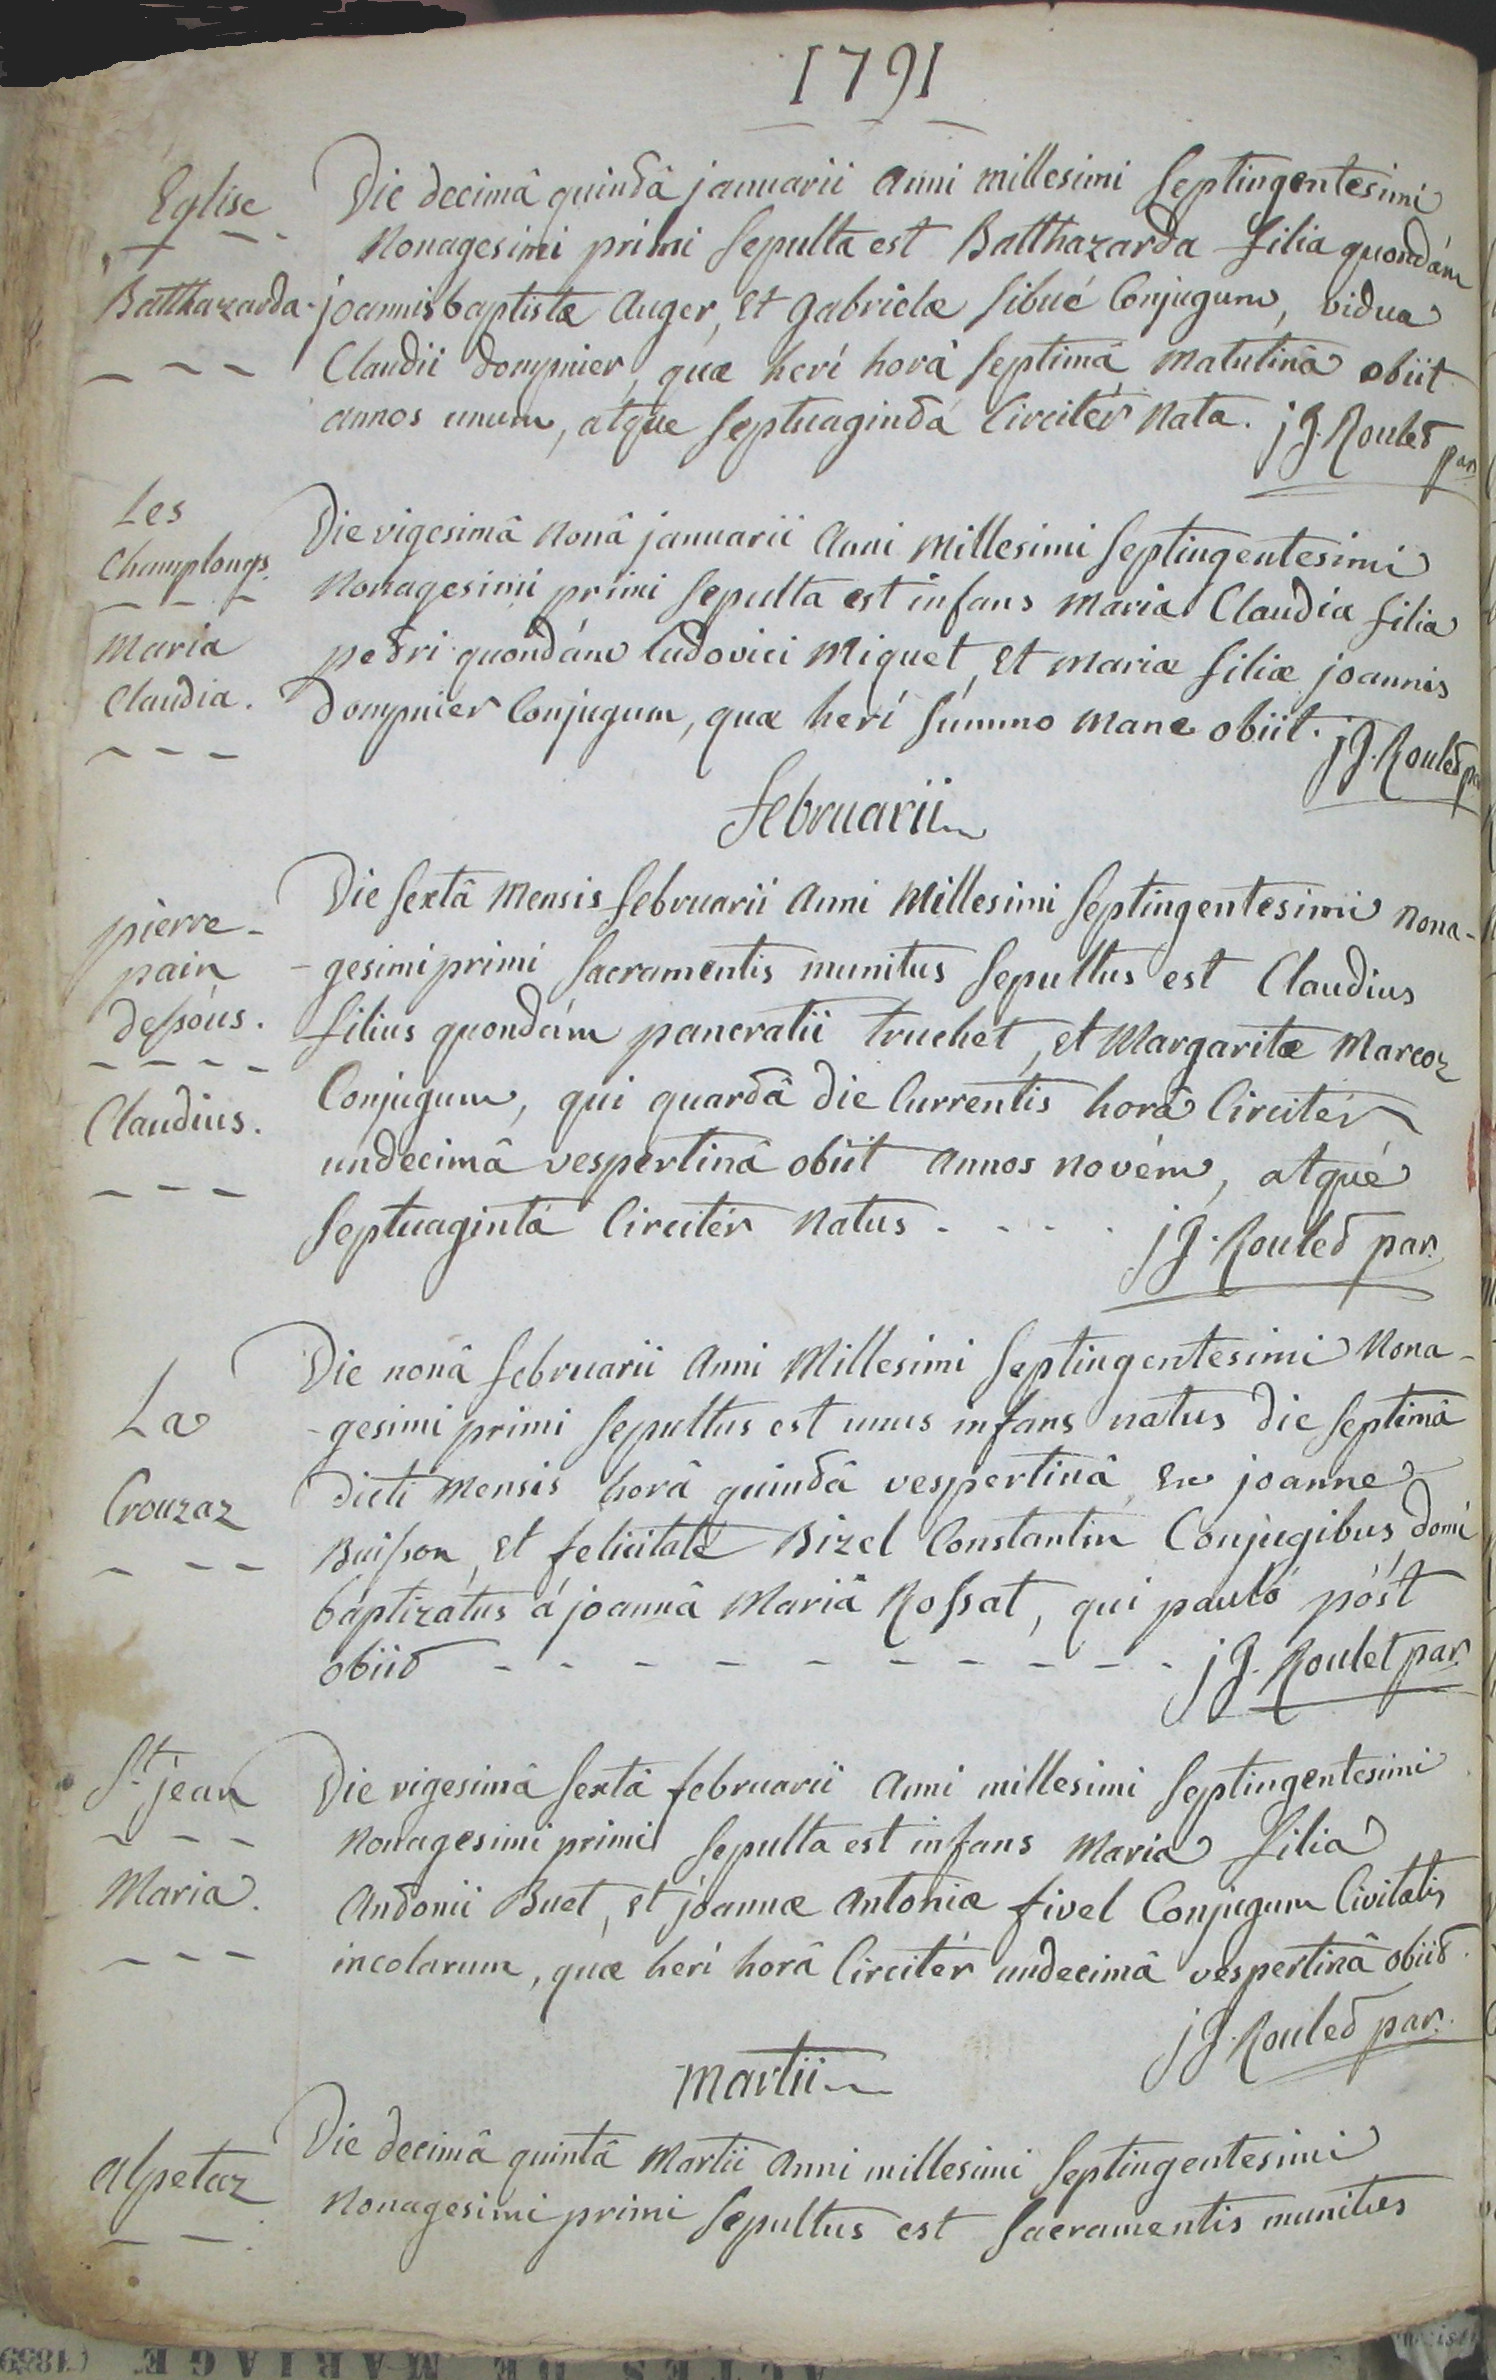 1791
Eglise
Balthazarda
Die decimâ quintâ januarii anni millesimi septingentesimi
nonagesimi primi sepulta est Balthazarda filia quondám
joannis baptistæ Auger, et gabrielæ sibué Conjugum, vidua
Claudii dompnier, quæ herí horâ septimâ matutinâ obiit
annos unum, atque septuagintá Circitér nata. j J. Roulet par
Les
Champlongs
Maria
Claudia.
Die vigesimâ nonâ januarii anni millesimi septingentesimi
nonagesimi primi sepulta est infans maria Claudia filia
petri quondám ludovici Miquet, et mariæ filiæ joannis
dompnier Conjugum, quæ herí súmmo mane obiit. j J. Roulet par
februarii
pierre-
pain
dessóus.
Claudius.
Die sextâ mensis februarii anni Millesimi septingentesimi nona-
-gesimi primi sacramentis munitus sepultus est Claudius
filius quondám pancratii truchet, et Margaritæ Marcoz
Conjugum, qui quartâ die Currentis horâ Circitér
undecimâ vespertinâ obiit annos novém, atqué
septuagintá Circitér natus - . . . j J. Roulet par.
La
Crouzaz
Die nonâ februarii anni Millesimi septingentesimi nona-
-gesimi primi sepultus est unus infans natus die septimâ
dicti mensis horâ quintâ vespertinâ, ex joanne
Buisson, et felicitate Bizel Constantin Conjugibus, domí
baptizatus á joannâ Mariâ Rossat, qui pauló póst
obiit - - - - - - - - - - j J. Roulet par.
St. jean
Maria.
Die vigesimâ sextâ februarii anni millesimi septingentesimi
nonagesimi primi sepulta est infans Maria filia
Antonii Buet, et joannæ antoniæ fivel Conjugum Civitatis
incolarum, quæ herí horâ Circitér undecimâ vespertinâ obiit.
j J. Roulet par.
martii
alpetaz
Die decimâ quintâ Martii anni millesimi septingentesimi
nonagesimi primi sepultus est sacramentis munitus
ACTES DE MARIAGE (1839